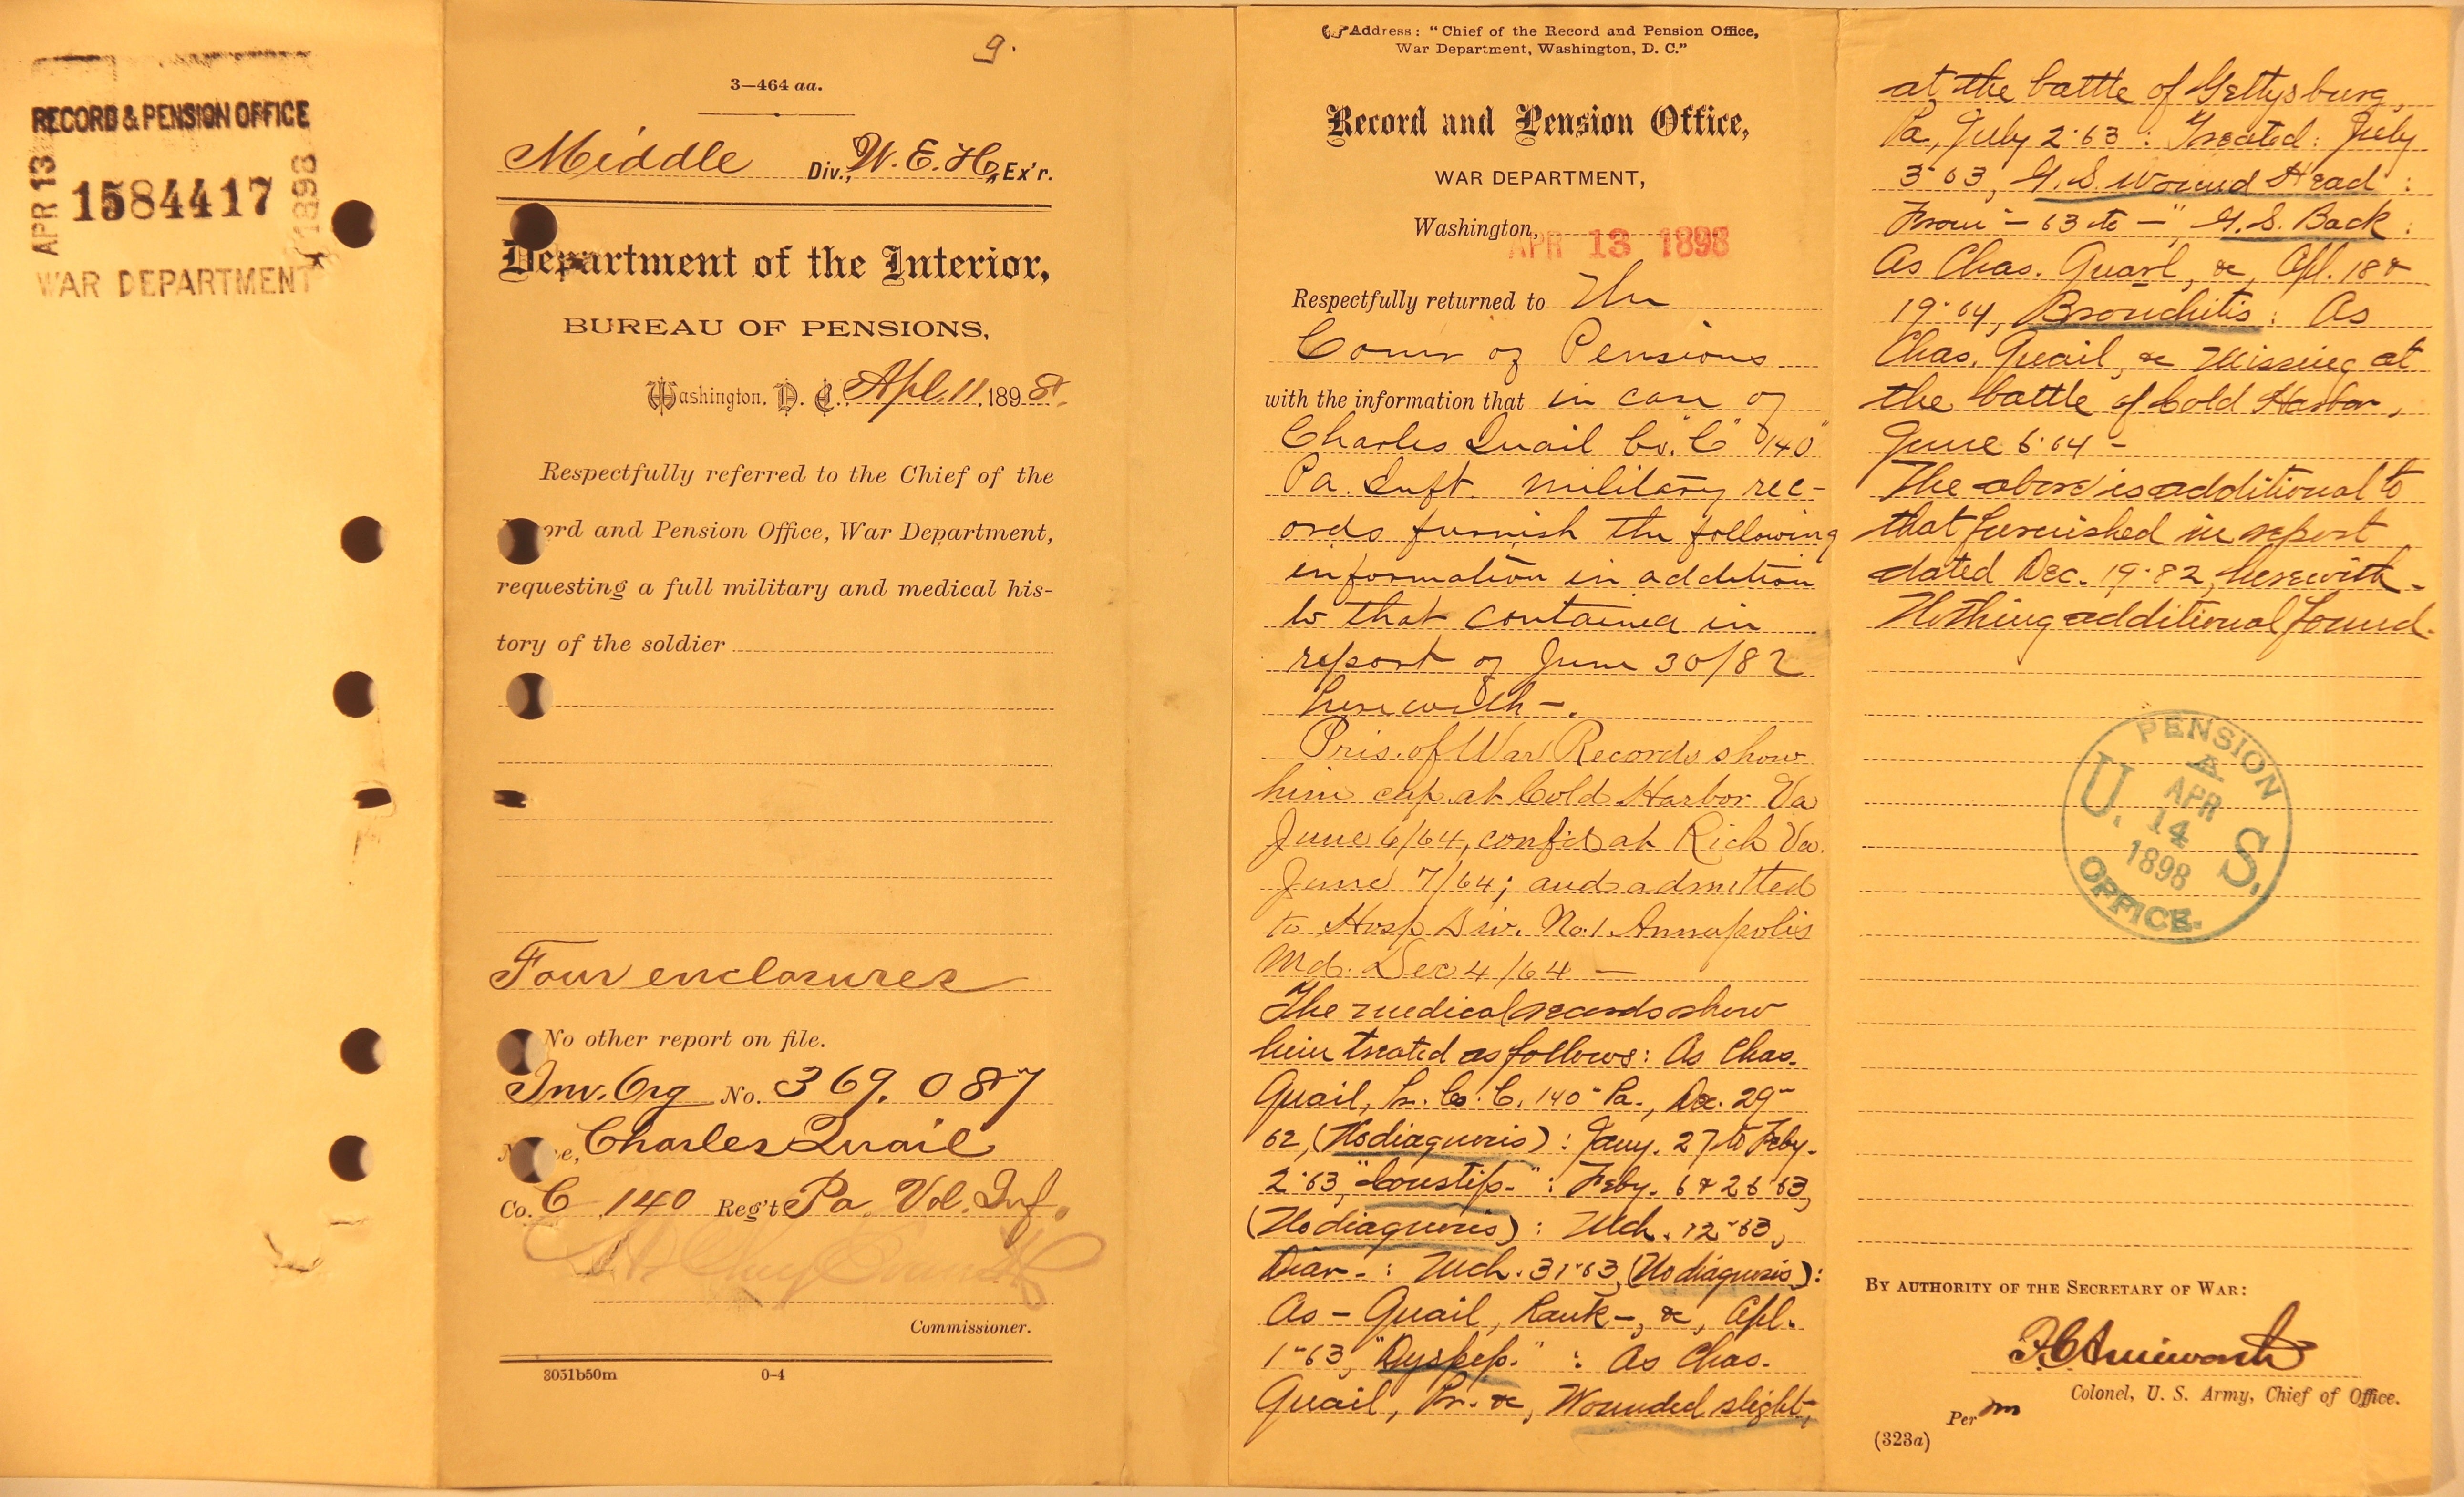 RECORD & PENSION OFFICE
APR 13
1584417
1898
WAR DEPARTMENT
9.
3—464 aa.
Middle Div., W. E. H., Ex'r.
Department of the Interior,
BUREAU OF PENSIONS,
Washington, D. C., Apl. 11, 1898.
Respectfully referred to the Chief of the
ord and Pension Office, War Department,
requesting a full military and medical his-
tory of the soldier
Four enclosures
No other report on file.
Inv. Org No. 369.087
Charles Quail
Co. C 140 Reg't Pa. Vol. Inf.
Commissioner.
3051b50m 0-4
Address: "Chief of the Record and Pension Office,
War Department, Washington, D. C."
Record and Pension Office,
WAR DEPARTMENT,
Washington, APR 13 1898
Respectfully returned to The
Comr of Pensions
with the information that in case of
Charles Quail Co. "C" 140"
Pa. Inft. military rec-
ords furnish the following
information in addition
to that contained in
report of June 30/82
herewith —.
Pris. of War Records show
him cap. at Cold Harbor Va
June 6/64, conf'd at Rich Va.
June 7/64; and admitted
to Hosp Div. No. 1. Annapolis
Md. Dec 4/64 —
The medical records show
him treated as follows: As Chas.
Quail, Pr. Co. C. 140" Pa., Dec. 29-
62, (No diagnosis): Jany. 27 to Feby.
2-63, "Constip.": Feby. 6 & 26-63,
(No diagnosis): Mch. 12-63,
Diar-: Mch. 31-63, (No diagnosis):
As — Quail, Rank —, &c, Apl.
1-63, "Dyspep.": As Chas.
Quail, Pr. &c, Wounded slight,
at the battle of Gettysburg,
Pa, July 2-63: Treated: July
3-63, G. S. Wound Head:
From — 63 to —" G. S. Back:
As Chas. Quarl, &c, Apl. 18 &
19-64, Bronchitis: As
Chas. Quail, &c Missing at
the battle of Cold Harbor,
June 6-64 —
The above is additional to
that furnished in report
dated Dec. 19-82, herewith.
Nothing additional found.
U. S. PENSION OFFICE.
APR
14
1898
BY AUTHORITY OF THE SECRETARY OF WAR:
F. C. Ainsworth
Colonel, U. S. Army, Chief of Office.
Per m
(323a)